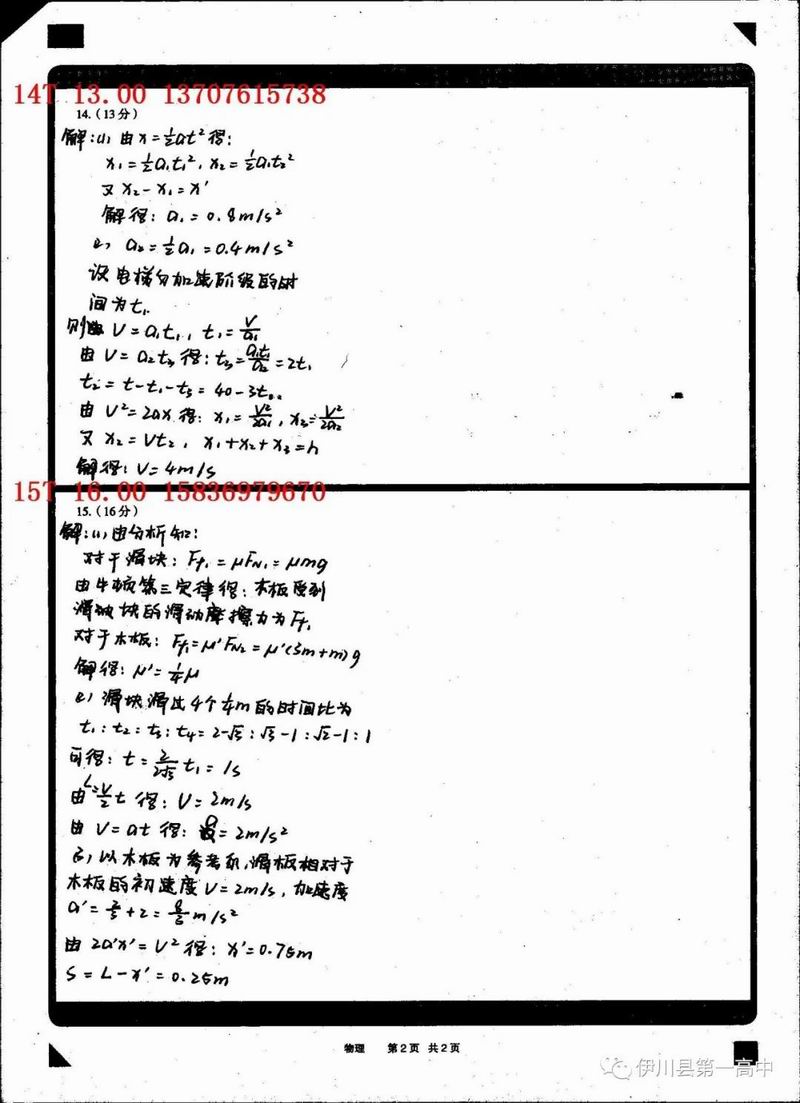 14T 13.00 13707615738
14.(13分)
解:(1) 由x=½at²得:
x₁=½a₁t₁², x₂=½a₁t₂²
又 x₂-x₁=x'
解得: a₁=0.8m/s²
(2) a₂=½a₁=0.4m/s²
设电梯匀加速阶段的时
间为t₁.
则由 V=a₁t₁, t₁=V/a₁
由 V=a₂t₃ 得: t₃=a₁t₁/a₂=2t₁
t₂=t-t₁-t₃=40-3t
由 V²=2ax 得: x₁=V²/2a₁, x₃=V²/2a₂
又 x₂=Vt₂, x₁+x₂+x₃=h
解得: V=4m/s
15T 16.00 15836979670
15.(16分)
解:(1) 由分析知:
对于滑块: Ff₁=μFN₁=μmg
由牛顿第三定律得: 木板受到
滑块的滑动摩擦力为Ff₁
对于木板: Ff₁=μ'FN₂=μ'(3m+m)g
解得: μ'=¼μ
(2) 滑块滑过4个¼m的时间比为
t₁:t₂:t₃:t₄=2-√3:√3-√2:√2-1:1
可得: t=2/(2-√3) t₁=1s
由L=V/2 t 得: V=2m/s
由 V=at 得: a=2m/s²
(3) 以木板为参考系,滑板相对于
木板的初速度V=2m/s, 加速度
a'=⅔+2=8/3m/s²
由 2a'x'=V² 得: x'=0.75m
S=L-x'=0.25m
物理 第2页 共2页
伊川县第一高中